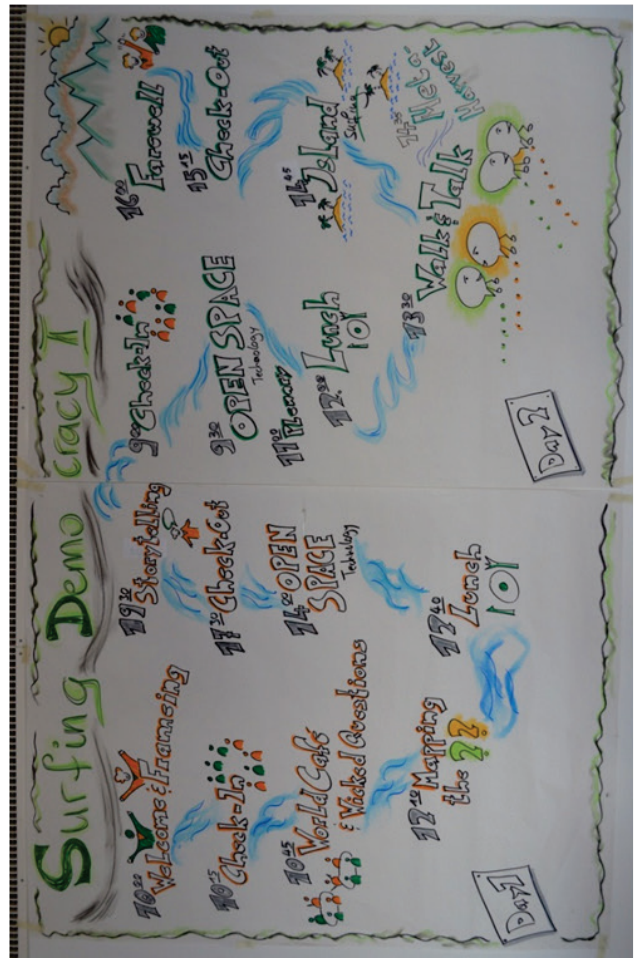 Surfing Democracy I
10⁰⁰ Welcome & Framing
10¹⁵ Check-In
10⁴⁵ World Café
& Wicked Questions
12¹⁰ Mapping
the ??
12⁴⁰ Lunch
14⁰⁰ OPEN
SPACE
Technology
17³⁰ Check-Out
19³⁰ Storytelling
Day 1
9⁰⁰ Check-In
9³⁰ OPEN SPACE
Technology
11⁰⁰ Plenary
Lunch
13³⁰ Walk & Talk
Meta-
Harvest
14⁴⁵ Island
Surfing
15¹⁵ Check-Out
16⁰⁰ Farewell
Day 2